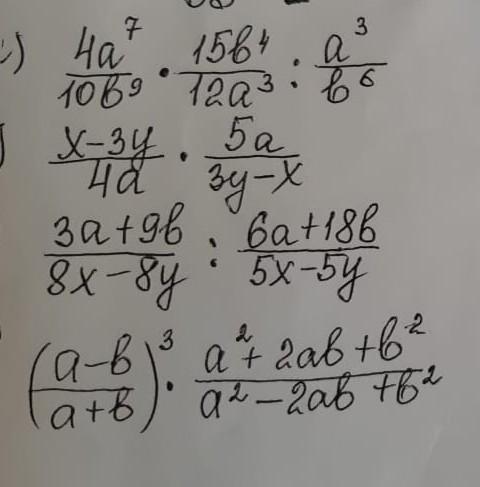 ) 4a⁷/10b⁹ · 15b⁴/12a³ : a³/b⁶
) (x-3y)/4a · 5a/(3y-x)
(3a+9b)/(8x-8y) : (6a+18b)/(5x-5y)
((a-b)/(a+b))³ · (a²+2ab+b²)/(a²-2ab+b²)